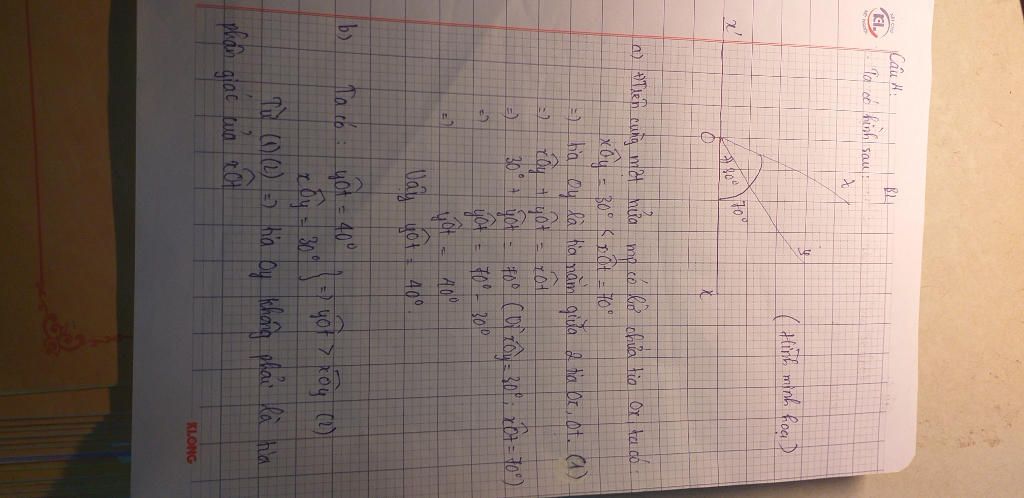 Câu 4: Bl
Ta có hình sau:
x'
O
x
t
y
30°
70°
(Hình minh hoạ)
a) Trên cùng một nửa mp có bờ chứa tia Ox, ta có
xÔy = 30° < xÔt = 70°
=) tia Oy là tia nằm giữa 2 tia Ox, Ot. (1)
=) xÔy + yÔt = xÔt
=) 30° + yÔt = 70° (Vì xÔy = 30°; xÔt = 70°)
=) yÔt = 70° - 30°
=) yÔt = 40°
Vậy yÔt = 40°.
b) Ta có: yÔt = 40°
xÔy = 30° } =) yÔt > xÔy (2)
Từ (1) (2) =) tia Oy không phải là tia
phân giác của xÔt
KLONG